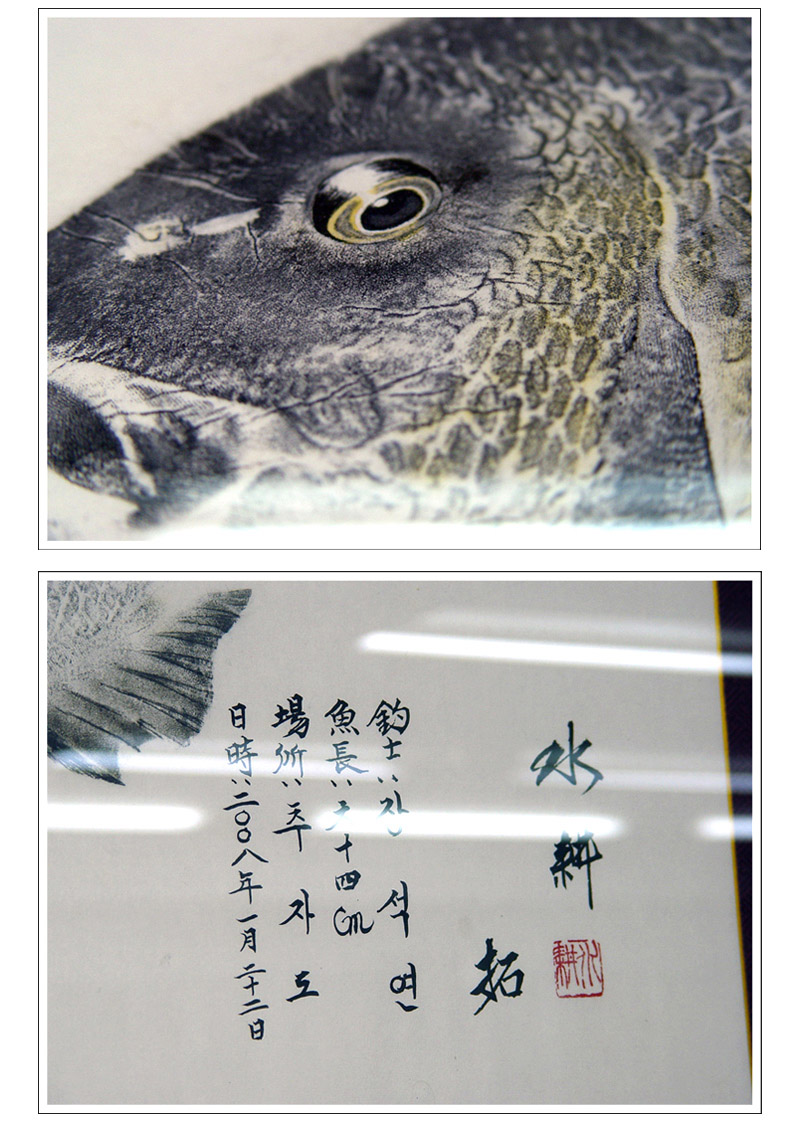 水耕
拓
水耕
釣士: 장 석 연
魚長: 十四cm
場所: 추 자 도
日時: 二〇〇八年 一月 二十二日